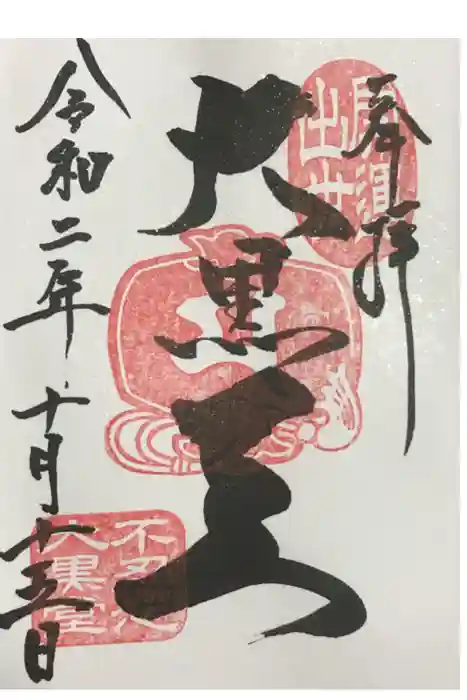 奉拝
大黒天
令和二年十月十五日
出世
不忍池
大黒堂